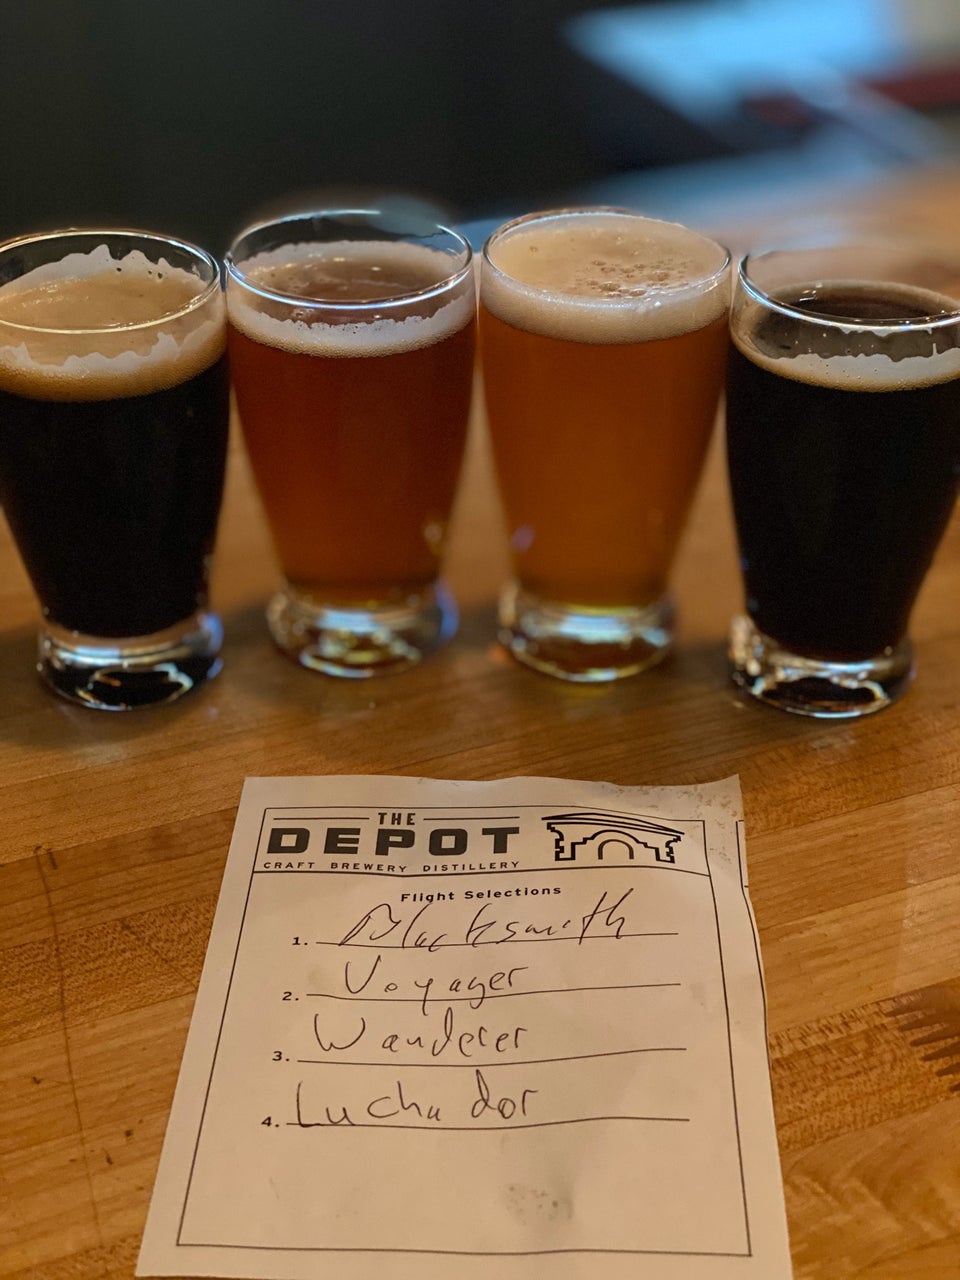 THE
DEPOT
CRAFT BREWERY DISTILLERY
Flight Selections
1. Blacksmith
2. Voyager
3. Wanderer
4. Luchador